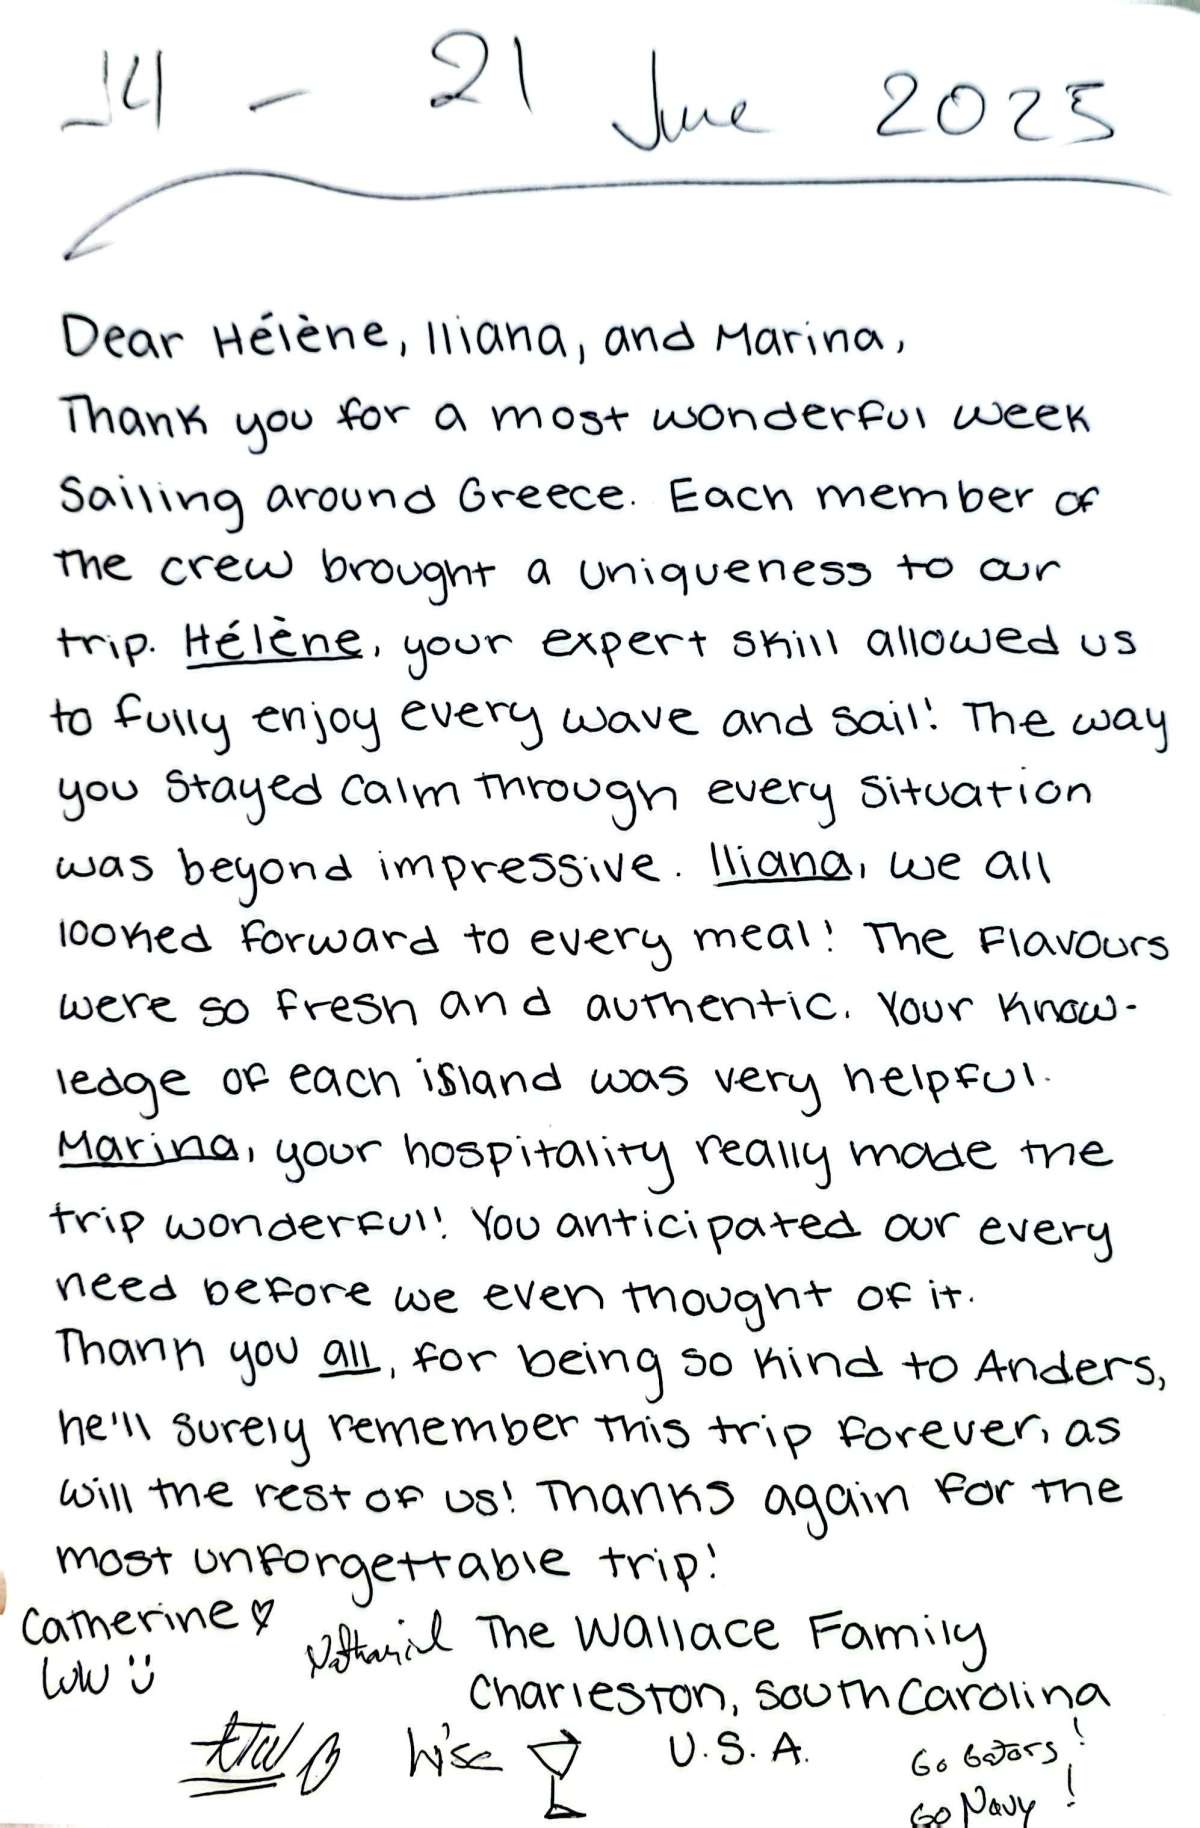 14 - 21 June 2025
Dear Hélène, Iliana, and Marina,
Thank you for a most wonderful week
Sailing around Greece. Each member of
the crew brought a uniqueness to our
trip. Hélène, your expert skill allowed us
to fully enjoy every wave and sail! The way
you stayed calm through every situation
was beyond impressive. Iliana, we all
looked forward to every meal! The Flavours
were so fresh and authentic. Your know-
ledge of each island was very helpful.
Marina, your hospitality really made the
trip wonderful! You anticipated our every
need before we even thought of it.
Thank you all, for being so kind to Anders,
he'll surely remember this trip forever, as
will the rest of us! Thanks again for the
most unforgettable trip!
Catherine ♡
Lulu
Nathaniel
The Wallace Family
Charleston, South Carolina
U.S.A.
Go Gators!
Go Navy!